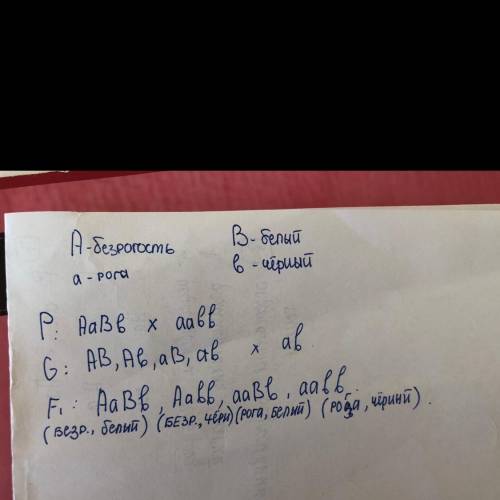 А - безрогость В - белый
а - рога в - чёрный
P: АаВв х аавв
G: АВ, Ав, аВ, ав х ав.
F₁: АаВв, Аавв, ааВв, аавв.
(безр., белый) (безр., чёрн) (рога, белый) (рога, чёрный).